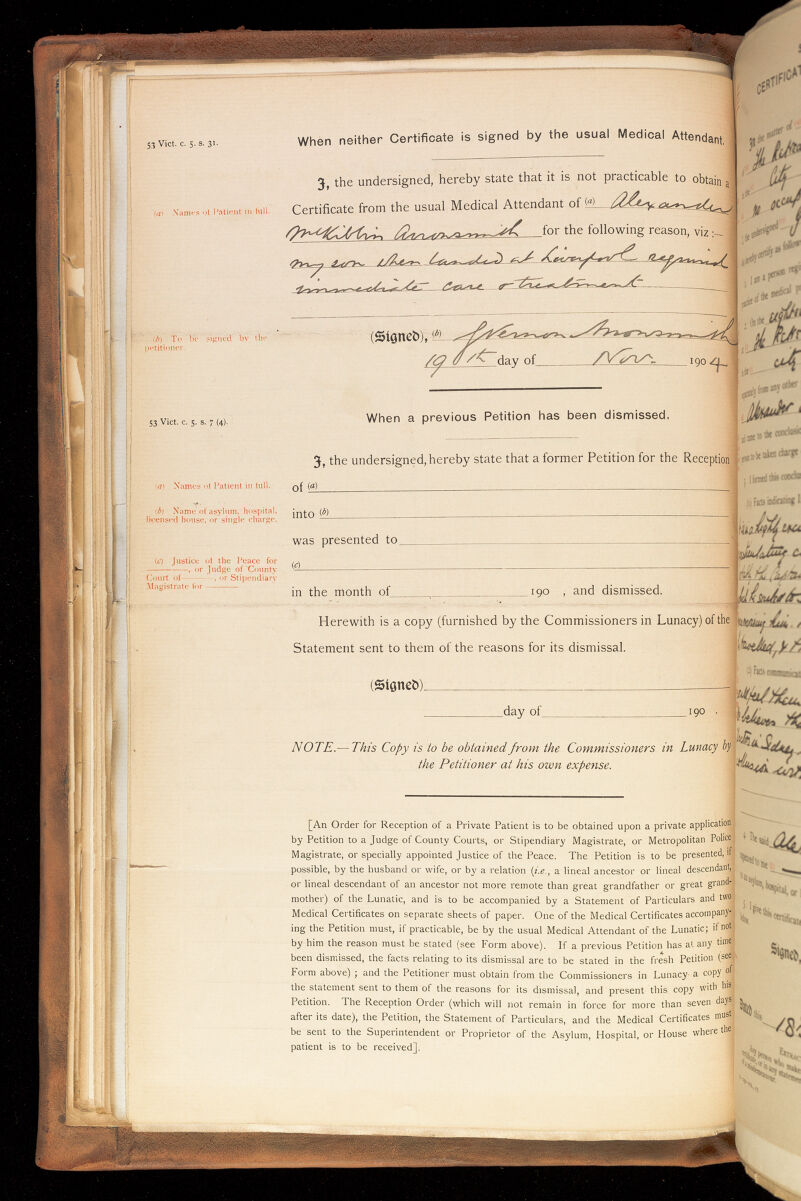 53 Vict. c. 5. s. 31.
When neither Certificate is signed by the usual Medical Attendant.
I, the undersigned, hereby state that it is not practicable to obtain a
(a) Names of Patient in full.
Certificate from the usual Medical Attendant of (a) Alexander
McKibbin Arrowsmith for the following reason, viz:—
my son when landed at Liverpool required
immediate care & treatment
(b) To be signed by the
petitioner.
(Signed), (b) J Vernon Arrowsmith
19th day of Nov. 1904
53 Vict. c. 5. s. 7 (4).
When a previous Petition has been dismissed.
I, the undersigned, hereby state that a former Petition for the Reception
(a) Names of Patient in full.
of (a)
(b) Name of asylum, hospital,
licensed house, or single charge.
into (b)
was presented to
(c) Justice of the Peace for
———, or Judge of County
Court of ———, or Stipendiary
Magistrate for ———
(c)
in the month of 190 , and dismissed.
Herewith is a copy (furnished by the Commissioners in Lunacy) of the
Statement sent to them of the reasons for its dismissal.
(Signed)
day of 190 .
NOTE.—This Copy is to be obtained from the Commissioners in Lunacy by
the Petitioner at his own expense.
[An Order for Reception of a Private Patient is to be obtained upon a private application
by Petition to a Judge of County Courts, or Stipendiary Magistrate, or Metropolitan Police
Magistrate, or specially appointed Justice of the Peace. The Petition is to be presented, if
possible, by the husband or wife, or by a relation (i.e., a lineal ancestor or lineal descendant,
or lineal descendant of an ancestor not more remote than great grandfather or great grand-
mother) of the Lunatic, and is to be accompanied by a Statement of Particulars and two
Medical Certificates on separate sheets of paper. One of the Medical Certificates accompany-
ing the Petition must, if practicable, be by the usual Medical Attendant of the Lunatic; if not
by him the reason must be stated (see Form above). If a previous Petition has at any time
been dismissed, the facts relating to its dismissal are to be stated in the fresh Petition (see
Form above) ; and the Petitioner must obtain from the Commissioners in Lunacy a copy of
the statement sent to them of the reasons for its dismissal, and present this copy with his
Petition. The Reception Order (which will not remain in force for more than seven days
after its date), the Petition, the Statement of Particulars, and the Medical Certificates must
be sent to the Superintendent or Proprietor of the Asylum, Hospital, or House where the
patient is to be received].